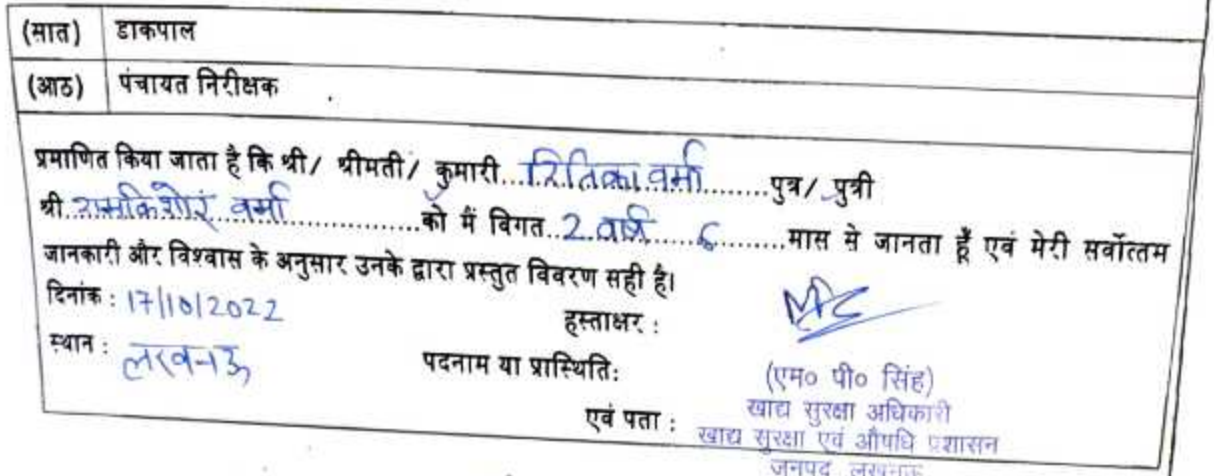 (सात) डाकपाल
(आठ) पंचायत निरीक्षक
प्रमाणित किया जाता है कि श्री/ श्रीमती/ कुमारी...रितिका वर्मा.........पुत्र/ पुत्री
श्री रामकिशोर वर्मा.................को मैं विगत..2 वर्ष.....6.........मास से जानता हूँ एवं मेरी सर्वोत्तम
जानकारी और विश्वास के अनुसार उनके द्वारा प्रस्तुत विवरण सही है।
दिनांक : 17/10/2022
हस्ताक्षर :
स्थान : लखनऊ
पदनाम या प्रास्थिति:
(एम० पी० सिंह)
एवं पता :
खाद्य सुरक्षा अधिकारी
खाद्य सुरक्षा एवं औषधि प्रशासन
जनपद लखनऊ